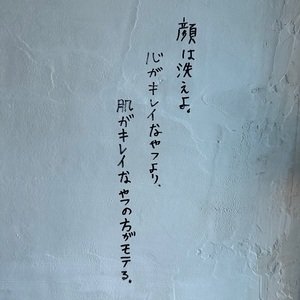 顔は洗えよ。
心がキレイなやつより、
肌がキレイなやつの方がモテる。